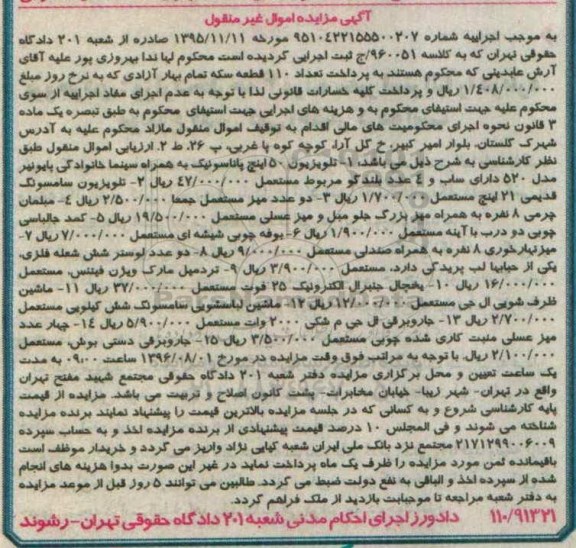 آگهی مزایده اموال غیر منقول
به موجب اجراییه شماره ۹۵۱۰۴۲۲۱۵۵۵۰۰۲۰۷ مورخه ۱۳۹۵/۱۱/۱۱ صادره از شعبه ۲۰۱ دادگاه
حقوقی تهران که به کلاسه ۹۶۰۰۵۱/ج ثبت اجرایی گردیده است محکوم لها ندا بهروزی پور علیه آقای
آرش عابدینی که محکوم هستند به پرداخت تعداد ۱۱۰ قطعه سکه تمام بهار آزادی که به نرخ روز مبلغ
۱/۴۰۸/۰۰۰/۰۰۰ ریال و پرداخت کلیه خسارات قانونی لذا با توجه به عدم اجرای مفاد اجراییه از سوی
محکوم علیه جهت استیفای محکوم به و هزینه های اجرایی جهت استیفای محکوم به طبق تبصره یک ماده
۳ قانون نحوه اجرای محکومیت های مالی اقدام به توقیف اموال منقول مازاد محکوم علیه به آدرس
شهرک گلستان، بلوار امیر کبیر، خ گل آرا، کوچه کوه پا غربی، پ ۲۶، ط ۲. ارزیابی اموال منقول طبق
نظر کارشناسی به شرح ذیل می باشد، ۱- تلویزیون ۵۰ اینچ پاناسونیک به همراه سینما خانوادگی پایونیر
مدل ۵۲۰ دارای ساب و ۴ عدد بلندگو مربوط مستعمل ۴۷/۰۰۰/۰۰۰ ریال ۲- تلویزیون سامسونگ
قدیمی ۲۱ اینچ مستعمل ۱/۷۰۰/۰۰۰ ریال ۳- دو عدد میز مستعمل جمعا ۲/۵۰۰/۰۰۰ ریال ۴- مبلمان
چرمی ۸ نفره به همراه میز بزرگ جلو مبل و میز عسلی مستعمل ۱۹/۵۰۰/۰۰۰ ریال ۵- کمد جالباسی
چوبی دو درب با آینه مستعمل ۱/۹۰۰/۰۰۰ ریال ۶- بوفه چوبی شیشه ای مستعمل ۷/۰۰۰/۰۰۰ ریال ۷-
میزنهارخوری ۸ نفره به همراه صندلی مستعمل ۹/۰۰۰/۰۰۰ ریال ۸- دو عدد لوستر شش شعله فلزی،
یکی از حبابها لب پریدگی دارد، مستعمل ۳/۹۰۰/۰۰۰ ریال ۹- تردمیل مارک ویژن فیتنس، مستعمل
۱۶/۰۰۰/۰۰۰ ریال ۱۰- یخچال جنرال الکتریک ۲۵ فوت مستعمل ۳۷/۰۰۰/۰۰۰ ریال ۱۱- ماشین
ظرف شویی ال جی مستعمل ۱۲/۰۰۰/۰۰۰ ریال ۱۲- ماشین لباسشویی سامسونگ شش کیلویی مستعمل
۲/۷۰۰/۰۰۰ ریال ۱۳- جاروبرقی ال جی م شکی ۲۰۰۰ وات مستعمل ۵/۹۰۰/۰۰۰ ریال ۱۴- چهار عدد
میز عسلی منبت کاری شده چوبی مستعمل ۳/۵۰۰/۰۰۰ ریال ۱۵- جاروبرقی دستی بوش، مستعمل
۲/۱۰۰/۰۰۰ ریال. با توجه به مراتب فوق وقت مزایده در مورخ ۱۳۹۶/۰۸/۰۱ ساعت ۰۹:۰۰ به مدت
یک ساعت تعیین و محل برگزاری مزایده دفتر شعبه ۲۰۱ دادگاه حقوقی مجتمع شهید مفتح تهران
واقع در تهران- شهر زیبا- خیابان مخابرات- پشت کانون اصلاح و تربیت می باشد. مزایده از قیمت
پایه کارشناسی شروع و به کسانی که در جلسه مزایده بالاترین قیمت را پیشنهاد نمایند برنده مزایده
شناخته می شوند و فی المجلس ۱۰ درصد قیمت پیشنهادی از برنده مزایده اخذ و به حساب سپرده
۲۱۷۱۲۹۹۰۰۶۰۰۹ مجتمع نزد بانک ملی ایران شعبه کیایی نژاد واریز می گردد و خریدار موظف است
باقیمانده ثمن مورد مزایده را ظرف یک ماه پرداخت نماید در غیر این صورت بدوا هزینه های انجام
شده از سپرده اخذ و الباقی به نفع دولت ضبط می گردد. طالبین می توانند ۵ روز قبل از موعد مزایده
به دفتر شعبه مراجعه تا موجبابت بازدید از ملک فراهم گردد.
۱۱۰/۹۱۳۲۱ دادورز اجرای احکام مدنی شعبه ۲۰۱ دادگاه حقوقی تهران - رشوند